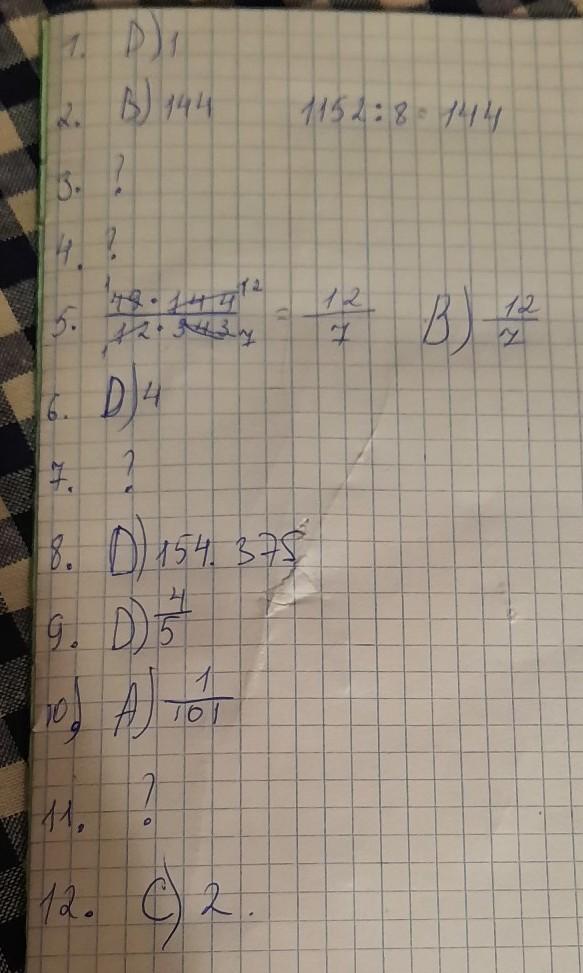 1. D) 1
2. B) 144 1152 : 8 = 144
3. ?
4. ?
5. 49 · 144 / 12 · 343 = 12/7 B) 12/7
1 12
1 7
6. D) 4
7. ?
8. D) 154. 375
9. D) 4/5
10) A) 1/101
11. ?
12. C) 2.